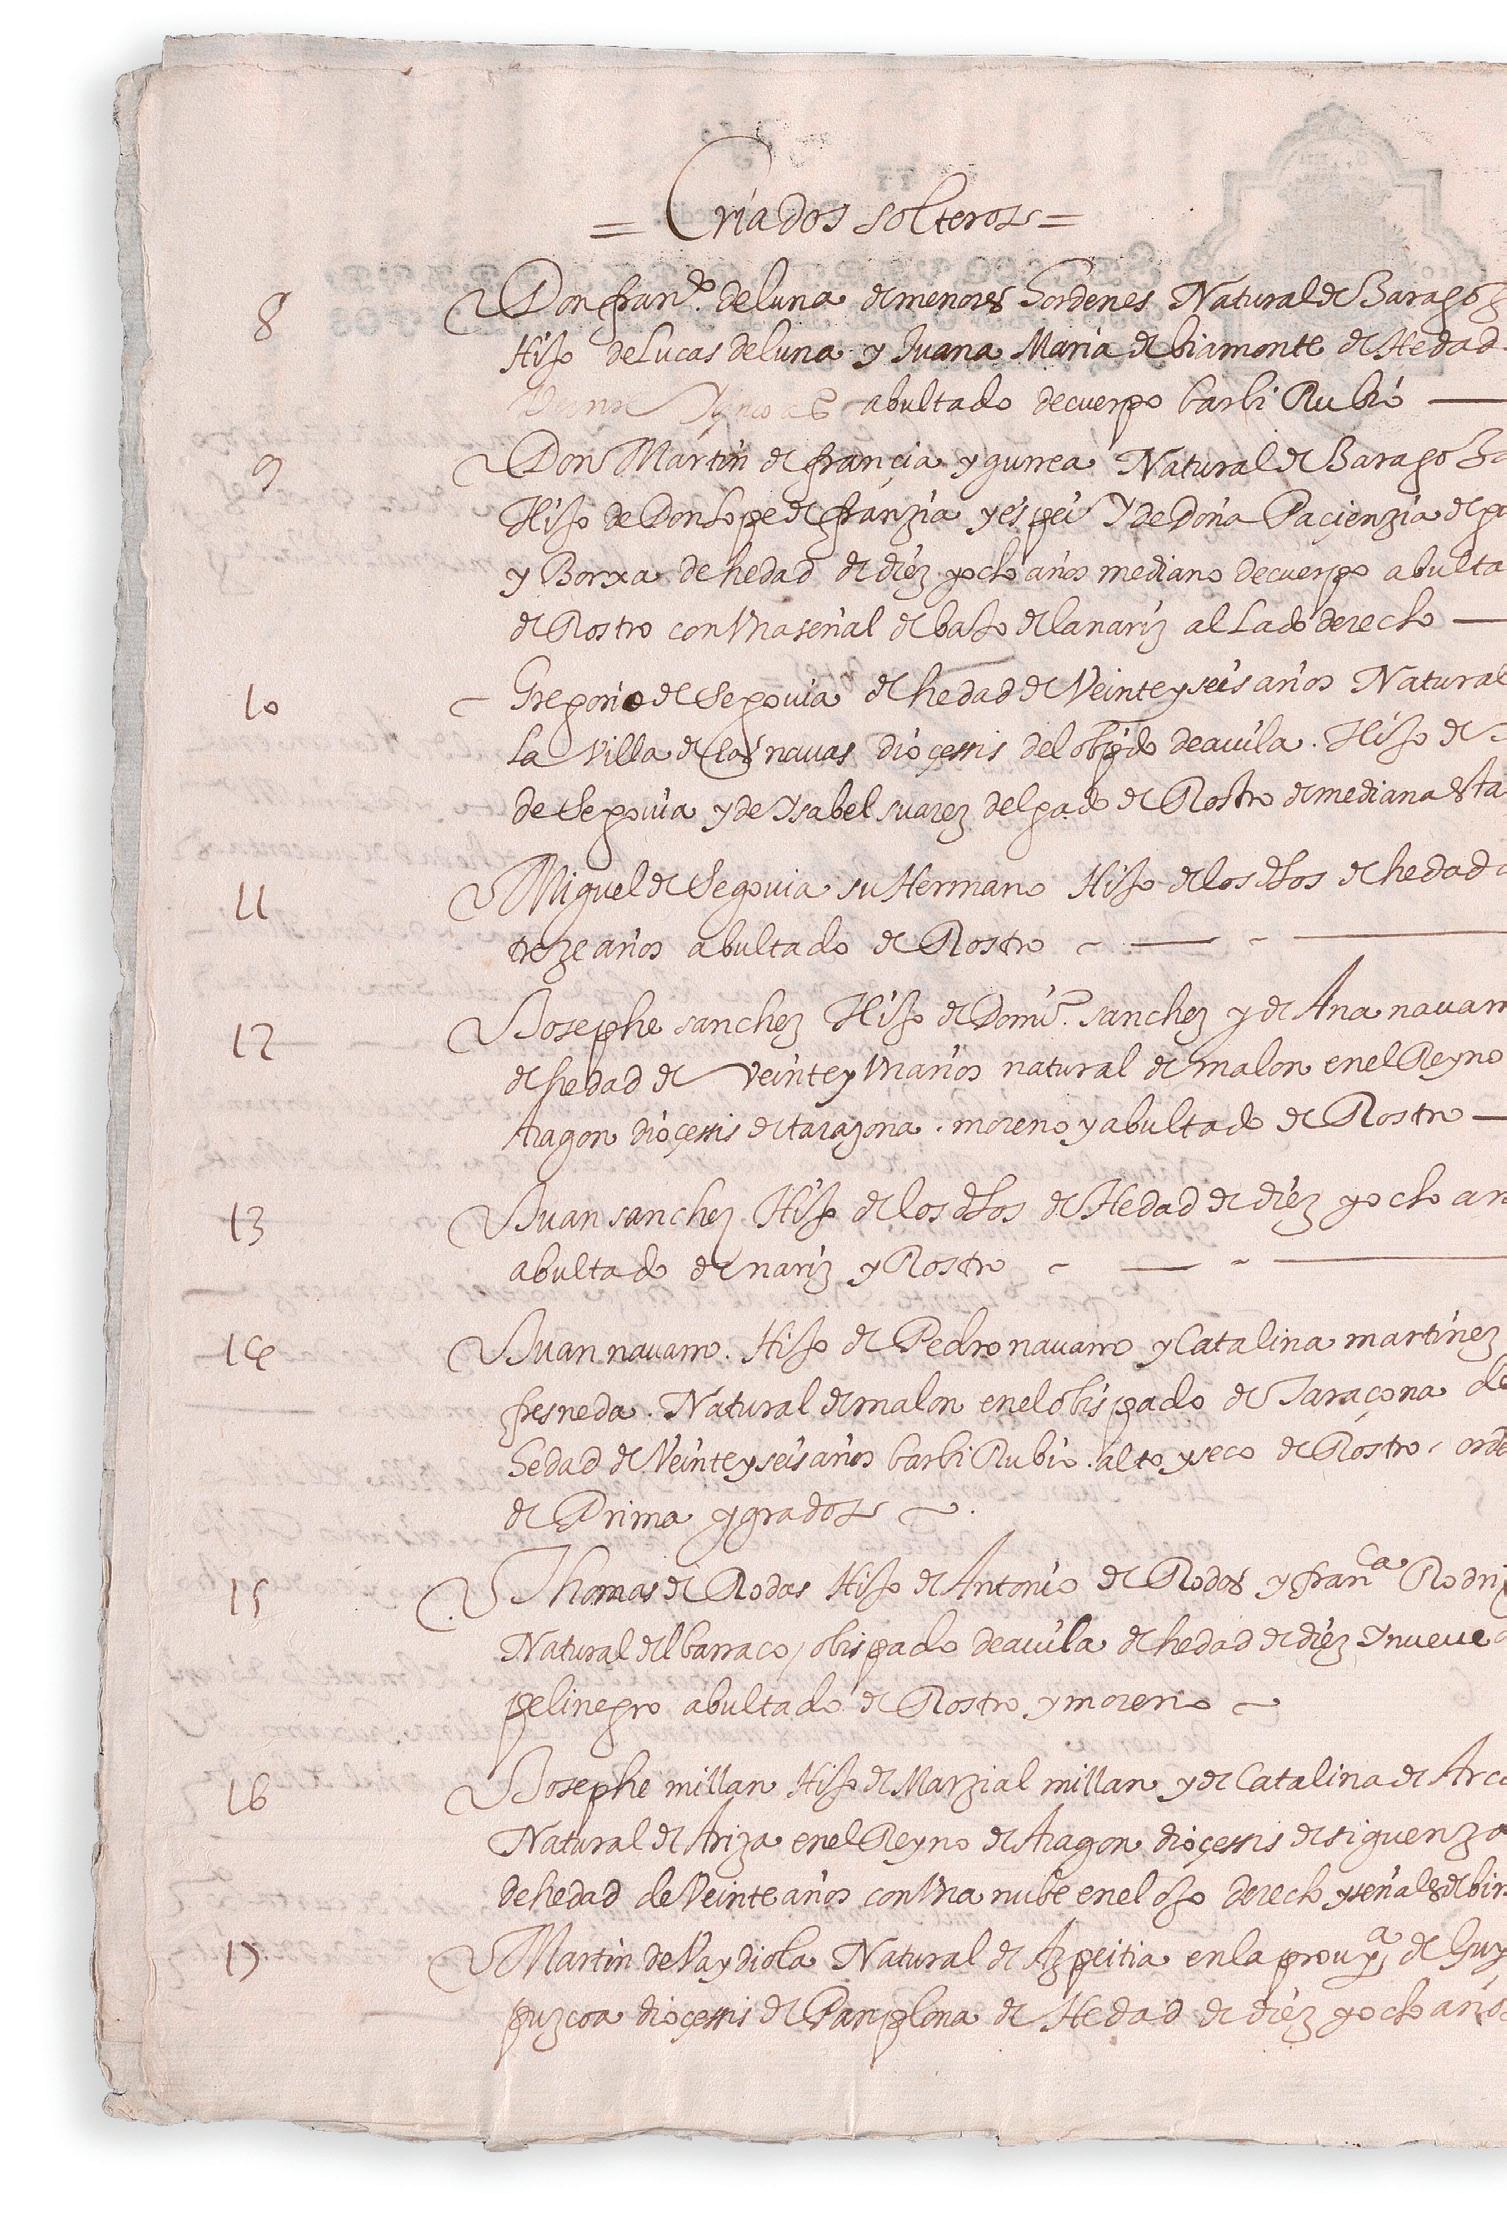 = Criados solteros =
8 Don fran.co de luna de menores hordenes Natural de Zarago
Hijo de Lucas de luna y Juana Maria de biamonte de Hedad
abultado de cuerpo barbi Rubio —
9 Don Martin de françia y gurrea Natural de Zarago
Hijo de Don Lope de franzia y espei Y de Doña Paçienzia de
y Borxa de hedad de diez y ocho años mediano de cuerpo abulta
de Rostro con Una señal de bajo de la nariz al Lado derecho —
10 Gregorio de Segovia de hedad de Veinte y seis años Natural
La Villa de las navas dioçessis del obpdo de auila. Hijo de
de Segouia y de Ysabel suarez delgado de Rostro de mediana esta
11 Miguel de Segouia su Hermano Hijo de los dhos de hedad
treze años abultado de Rostro ~ — ~ —
12 Josephe sanchez Hijo de Domi.o sanchez y de Ana nauarr
de hedad de Veinte y Un años natural de malon en el Reyno
Aragon dioçessis de tarazona. moreno y abultado de Rostro —
13 Juan sanchez Hijo de los dhos de Hedad de diez y ocho añ
abultado de nariz y Rostro ~ — ~ —
14 Juan nauarro. Hijo de Pedro nauarro y Catalina martinez
fresneda. Natural de malon en el obispado de Taraçona de
hedad de Veinte y seis años barbi Rubio. alto y seco de Rostro. orde
de Prima y grados ~
15 Thomas de Rodas Hijo de Antonio de Rodas y fran.ca Rodri
Natural del barraco, obispado de auila de hedad de diez Y nueue
pelinegro abultado de Rostro y moreno ~
16 Josephe millan Hijo de Marzial millan y de Catalina de Arc
Natural de Ariza en el Reyno de Aragon dioçessis de siguenza
de hedad de Veinte años con Una nube en el ojo derech y señales de bir
17 Martin de Vaydiola Natural de Azpeitia en la prou.a de Guy
puzcoa dioçessis de Panplona de Hedad de diez y ocho años